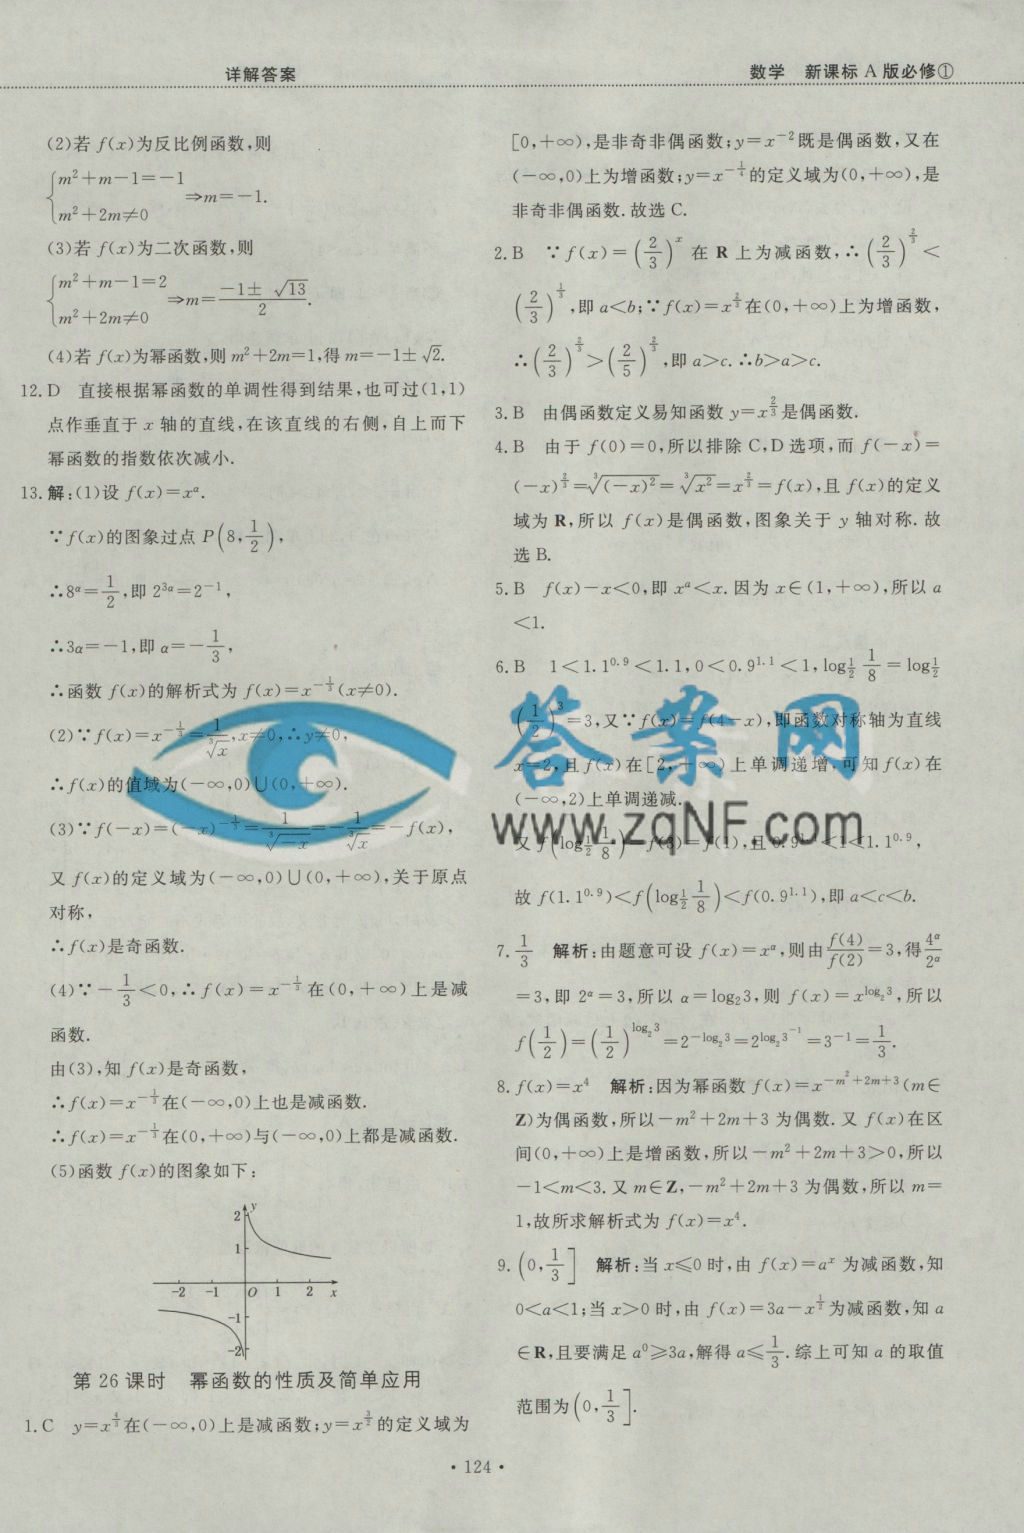 详解答案
数学 新课标A版必修①
(2)若 f(x)为反比例函数,则
{m²+m-1=-1
m²+2m≠0 ⇒m=-1.
(3)若 f(x)为二次函数,则
{m²+m-1=2
m²+2m≠0 ⇒m=(-1±√13)/2.
(4)若 f(x)为幂函数,则 m²+2m=1,得 m=-1±√2.
12. D 直接根据幂函数的单调性得到结果,也可过(1,1)
点作垂直于 x 轴的直线,在该直线的右侧,自上而下
幂函数的指数依次减小.
13. 解:(1)设 f(x)=x^α.
∵f(x)的图象过点 P(8,1/2),
∴8^α=1/2,即 2^(3α)=2^(-1),
∴3α=-1,即 α=-1/3,
∴函数 f(x)的解析式为 f(x)=x^(-1/3)(x≠0).
(2)∵f(x)=x^(-1/3)=1/∛x,x≠0,∴y≠0,
∴f(x)的值域为(-∞,0)∪(0,+∞).
(3)∵f(-x)=(-x)^(-1/3)=1/∛(-x)=-1/∛x=-f(x),
又 f(x)的定义域为(-∞,0)∪(0,+∞),关于原点
对称,
∴f(x)是奇函数.
(4)∵-1/3<0,∴f(x)=x^(-1/3)在(0,+∞)上是减
函数.
由(3),知 f(x)是奇函数,
∴f(x)=x^(-1/3)在(-∞,0)上也是减函数.
∴f(x)=x^(-1/3)在(0,+∞)与(-∞,0)上都是减函数.
(5)函数 f(x)的图象如下:
y
2
1
-2 -1 O 1 2 x
-1
-2
第 26 课时 幂函数的性质及简单应用
1. C y=x^(4/3)在(-∞,0)上是减函数;y=x^(3/2)的定义域为
[0,+∞),是非奇非偶函数;y=x^(-2)既是偶函数,又在
(-∞,0)上为增函数;y=x^(-1/4)的定义域为(0,+∞),是
非奇非偶函数.故选 C.
2. B ∵f(x)=(2/3)^x 在 R 上为减函数,∴(2/3)^(2/3)<
(2/3)^(1/3),即 a<b;∵f(x)=x^(2/3)在(0,+∞)上为增函数,
∴(2/3)^(2/3)>(2/5)^(2/3),即 a>c.∴b>a>c.
3. B 由偶函数定义易知函数 y=x^(2/3)是偶函数.
4. B 由于 f(0)=0,所以排除 C,D 选项,而 f(-x)=
(-x)^(2/3)=∛((-x)²)=∛(x²)=x^(2/3)=f(x),且 f(x)的定义
域为 R,所以 f(x)是偶函数,图象关于 y 轴对称.故
选 B.
5. B f(x)-x<0,即 x^α<x.因为 x∈(1,+∞),所以 α
<1.
6. B 1<1.1^0.9<1.1,0<0.9^1.1<1,log_(1/2) 1/8=log_(1/2)
(1/2)³=3,又∵f(x)=f(4-x),即函数对称轴为直线
x=2,且 f(x)在[2,+∞)上单调递增,可知 f(x)在
(-∞,2)上单调递减.
又 f(log_(1/2) 1/8)=f(3)=f(1),且 0.9^1.1<1<1.1^0.9,
故 f(1.1^0.9)<f(log_(1/2) 1/8)<f(0.9^1.1),即 a<c<b.
7. 1/3 解析:由题意可设 f(x)=x^α,则由 f(4)/f(2)=3,得 4^α/2^α
=3,即 2^α=3,所以 α=log₂3,则 f(x)=x^(log₂3),所以
f(1/2)=(1/2)^(log₂3)=2^(-log₂3)=2^(log₂3^(-1))=3^(-1)=1/3.
8. f(x)=x⁴ 解析:因为幂函数 f(x)=x^(-m²+2m+3)(m∈
Z)为偶函数,所以-m²+2m+3 为偶数.又 f(x)在区
间(0,+∞)上是增函数,所以-m²+2m+3>0,所以
-1<m<3.又 m∈Z,-m²+2m+3 为偶数,所以 m=
1,故所求解析式为 f(x)=x⁴.
9. (0,1/3] 解析:当 x≤0 时,由 f(x)=a^x 为减函数,知
0<a<1;当 x>0 时,由 f(x)=3a-x^(1/2)为减函数,知 a
∈R,且要满足 a⁰≥3a,解得 a≤1/3.综上可知 a 的取值
范围为(0,1/3].
答案网
www.zqNF.com
·124·